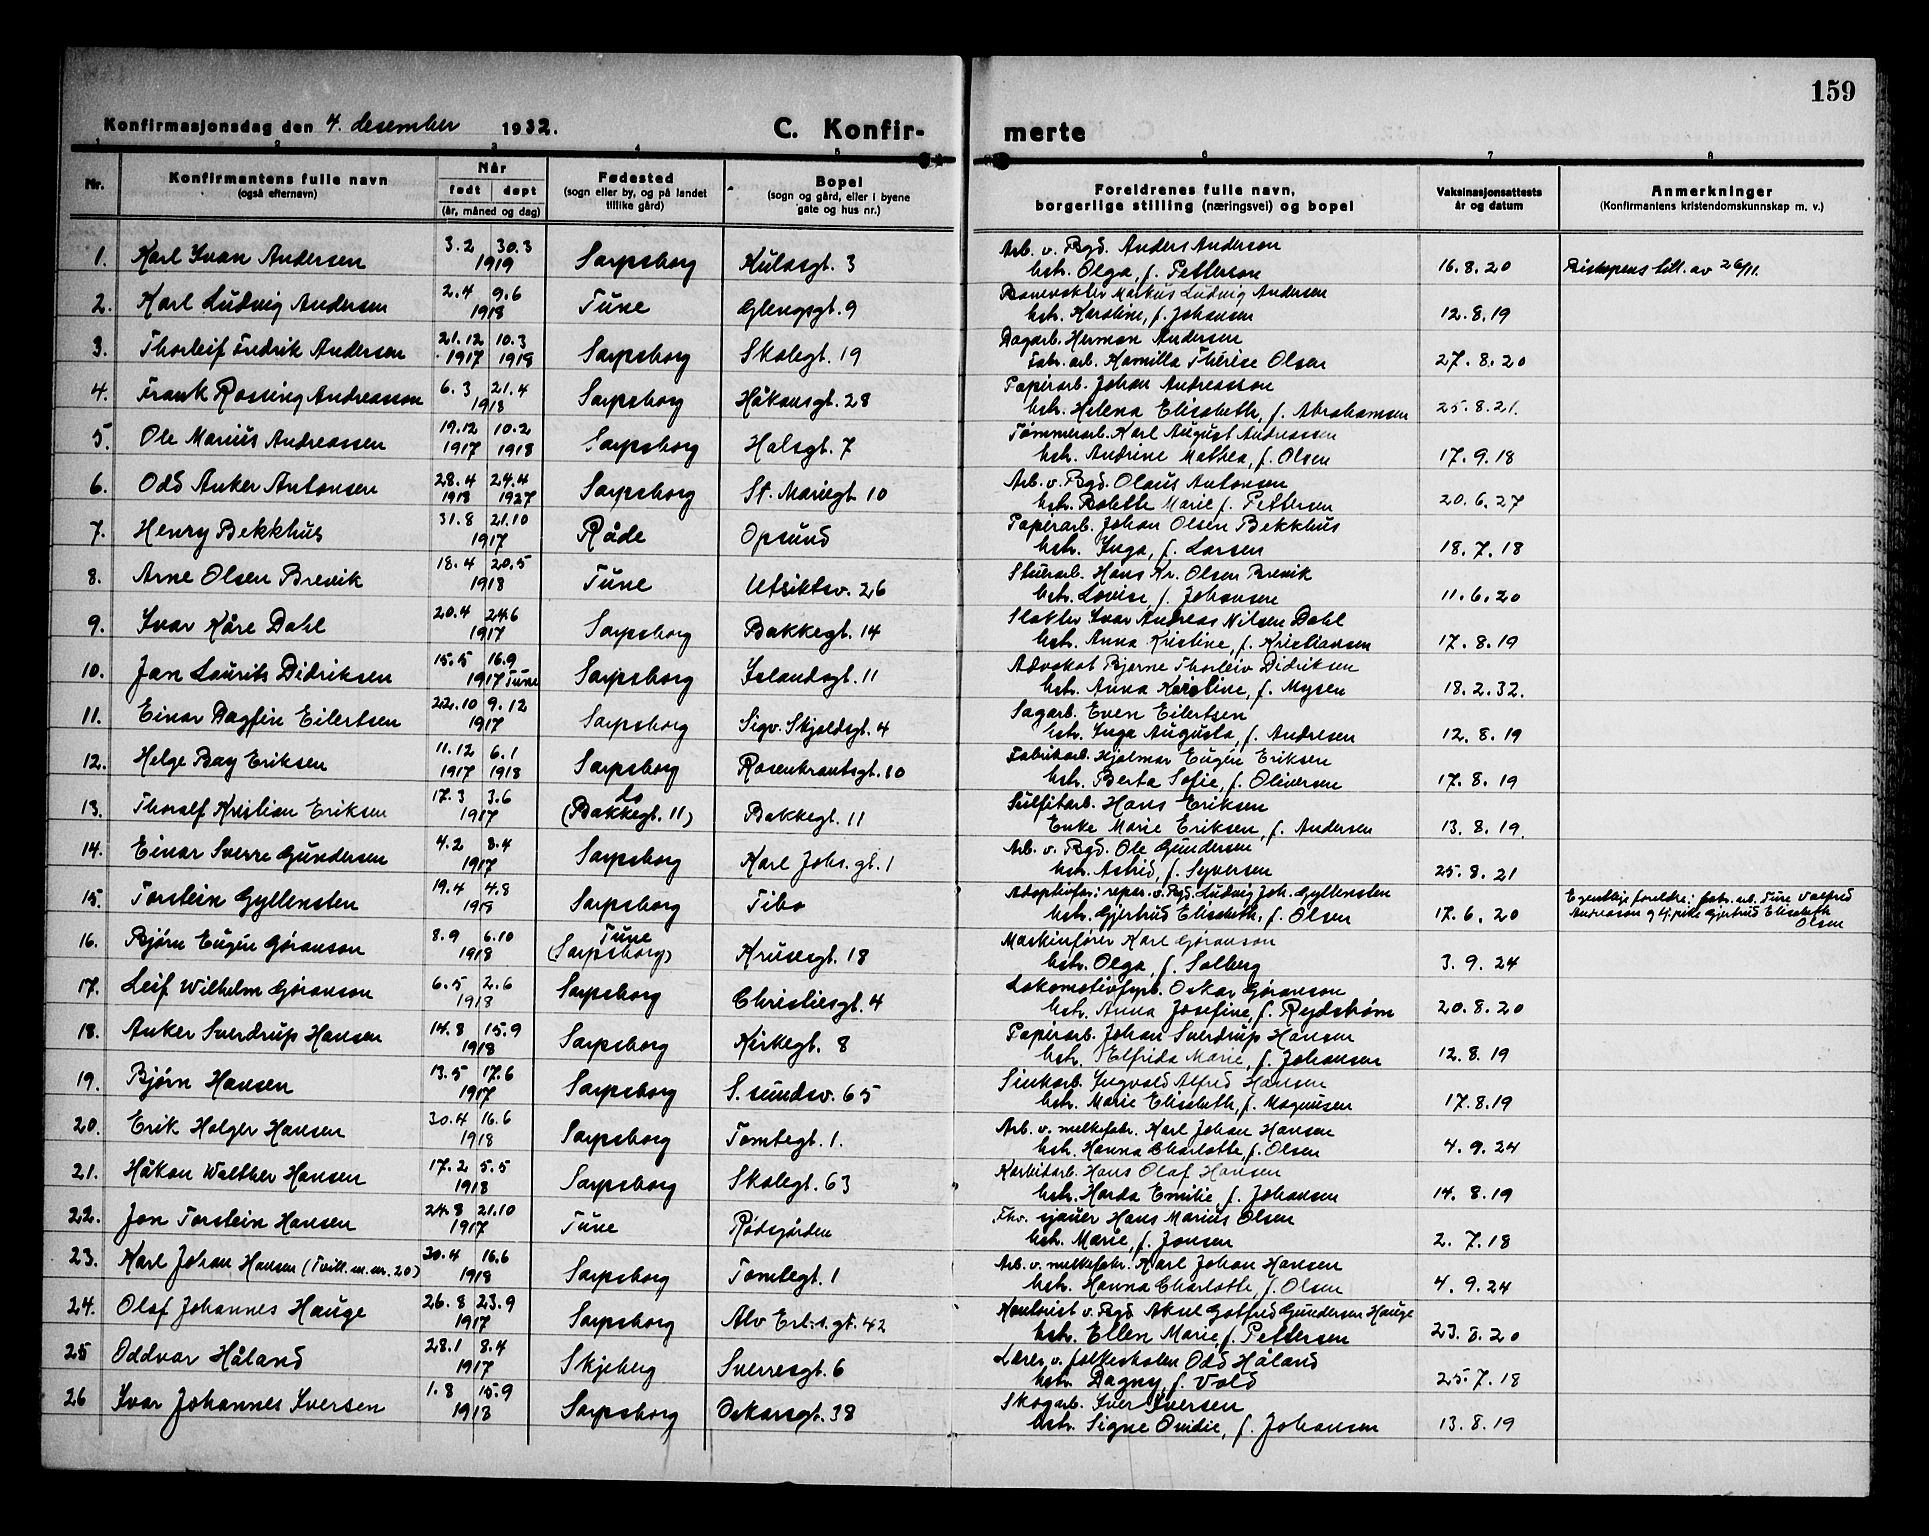 159
Konfirmasjonsdag den 4. desember 1932.
C. Konfir-
merte
1 2 3 4 5 6 7 8
Nr.
Konfirmantens fulle navn
(også efternavn)
Når
født døpt
(år, måned og dag)
Fødested
(sogn eller by, og på landet
tillike gård)
Bopel
(sogn og gård, eller i byene
gate og hus nr.)
Foreldrenes fulle navn,
borgerlige stilling (næringsvei) og bopel
Vaksinasjonsattests
år og datum
Anmerkninger
(Konfirmantens kristendomskunnskap m. v.)
3.2 30.3 Arb. v. Bgd. Anders Anderson
1. Karl Ivan Andersen 1919 Sarpsborg Kulåsgt. 3 hstr. Olga, f. Petterson 16.8.20 Biskopens till. av 26/11.
2.4 9.6 Banevokter Markus Ludvig Andersen
2. Karl Ludvig Andersen 1918 Tune Glengsgt. 9 hstr. Karoline, f. Johansen 12.8.19
21.12 10.3 Dagarb. Herman Andersen
3. Thorleif Fredrik Andersen 1917 1918 Sarpsborg Skolegt. 19 Fabr. arb. Kamilla Therise Olsen 27.8.20
6.3 21.4 Papirarb. Johan Andreasson
4. Frank Rossing Andreasson 1918 Sarpsborg Håkonsgt. 28 hstr. Helena Elisabeth, f. Abrahamsen 25.8.21.
19.12 10.2 Tømmerarb. Karl August Andreassen
5. Ole Marius Andreassen 1917 1918 Sarpsborg Halsgt. 7 hstr. Andrine Mathea, f. Olsen 17.9.18
28.4 24.4 Arb. v. Bgd. Olaus Antonsen
6. Odd Anker Antonsen 1918 1927 Sarpsborg St. Mariegt. 10 hstr. Bolette Marie f. Pettersen 20.6.27
31.8 21.10 Papirarb. Johan Olsen Bekkhus
7. Henry Bekkhus 1917 Råde Opsund hstr. Inga, f. Larsen 18.7.18
18.4 20.5 Stuerarb. Hans Kr. Olsen Brevik
8. Arne Olsen Brevik 1918 Tune Utsiktsv. 26 hstr. Lovise, f. Johansen 11.6.20
20.4 24.6 Slakter Ivar Andreas Nilsen Dahl
9. Ivar Kåre Dahl 1917 Sarpsborg Bakkegt. 14 hstr. Anna Kristine, f. Kristiansen 17.8.19
15.5 16.9 Advokat Bjarne Thorleiv Didriksen
10. Jan Laurits Didriksen 1917 Tune Sarpsborg Islandsgt. 11 hstr. Anna Karoline, f. Mysen 18.2.32.
22.10 9.12 Sagarb. Even Eilertsen
11. Einar Dagfin Eilertsen 1917 Sarpsborg Sigv. Skjoldsgt. 4 hstr. Inga Augusta, f. Andresen 12.8.19
11.12 6.1 Fabrikarb. Hjalmar Eugen Eriksen
12. Helge Bay Eriksen 1917 1918 Sarpsborg Rosenkrantsgt. 10 hstr. Berta Sofie, f. Oliversen 17.8.19
17.3 3.6 do Sulfitarb. Hans Eriksen
13. Thoralf Kristian Eriksen 1917 (Bakkegt. 11) Bakkegt. 11 Enke Marie Eriksen, f. Andersen 13.8.19.
4.2 8.4 Arb. v. Bgd. Ole Gundersen
14. Einar Sverre Gundersen 1917 Sarpsborg Karl Johs. gt. 1 hstr. Astrid, f. Syversen 25.8.21
19.4 4.8 Adoptivfor: reper. v. Bgd. Ludvig Joh. Gyllensten Egentlige foreldre: fabr. arb. Ture Valfred
15. Torstein Gyllensten 1918 Sarpsborg Tibo hstr. Gjertrud Elisabeth, f. Olsen 17.6.20 Andreasson og tj.pike Gjertrud Elisabeth
Olsen
8.9 6.10 Tune Maskinfører Karl Göranson
16. Bjørn Eugen Göranson 1918 (Sarpsborg) Krusesgt. 18 hstr. Olga, f. Solberg 3.9.24
6.5 2.6 Lokomotivfyrb. Oskar Göranson
17. Leif Wilhelm Göranson 1918 Sarpsborg Christiesgt. 4 hstr. Anna Josefine, f. Rydstrøm 20.8.20
14.8 15.9 Papirarb. Johan Sverdrup Hansen
18. Anker Sverdrup Hansen 1918 Sarpsborg Kirkegt. 8 hstr. Elfrida Marie, f. Johansen 12.8.19
13.5 17.6 Sinkarb. Ingvald Alfred Hansen
19. Bjørn Hansen 1917 Sarpsborg S. sundsv. 65 hstr. Marie Elisabeth, f. Magnusen 17.8.19
30.4 16.6 Arb. v. melkefabr. Karl Johan Hansen
20. Erik Holger Hansen 1918 Sarpsborg Tomtegt. 1. hstr. Hanna Charlotte, f. Olsen 4.9.24
17.2 5.5 Karbidarb. Hans Olaf Hansen
21. Håkon Walther Hansen 1918 Sarpsborg Skolegt. 63 hstr. Harda Emilie, f. Johansen 14.8.19
24.8 21.10 Fhv. sjauer Hans Marius Olsen
22. Jon Torstein Hansen 1917 Tune Rødsgården hstr. Marie, f. Jonsen 2.7.18
30.4 16.6 Arb. v. melkefabr. Karl Johan Hansen
23. Karl Johan Hansen (Tvill. m. nr. 20) 1918 Sarpsborg Tomtegt. 1 hstr. Hanna Charlotte, f. Olsen 4.9.24
26.8 23.9 Kontorist v. Bgd Aksel Gotfred Gundersen Hauge
24. Olaf Johannes Hauge 1917 Sarpsborg Alv Erl.s.gt. 42 hstr. Ellen Marie, f. Pettersen 23.8.20
28.1 8.4 Lærer v. folkeskolen Odd Håland
25 Oddvar Håland 1917 Skjeberg Sverresgt. 6 hstr. Dagny, f. Vold 25.7.18
1.8 15.9 Skogarb. Iver Iversen
26 Ivar Johannes Iversen 1918 Sarpsborg Oskarsgt. 38 hstr. Signe Ovidie, f. Johansen 13.8.19